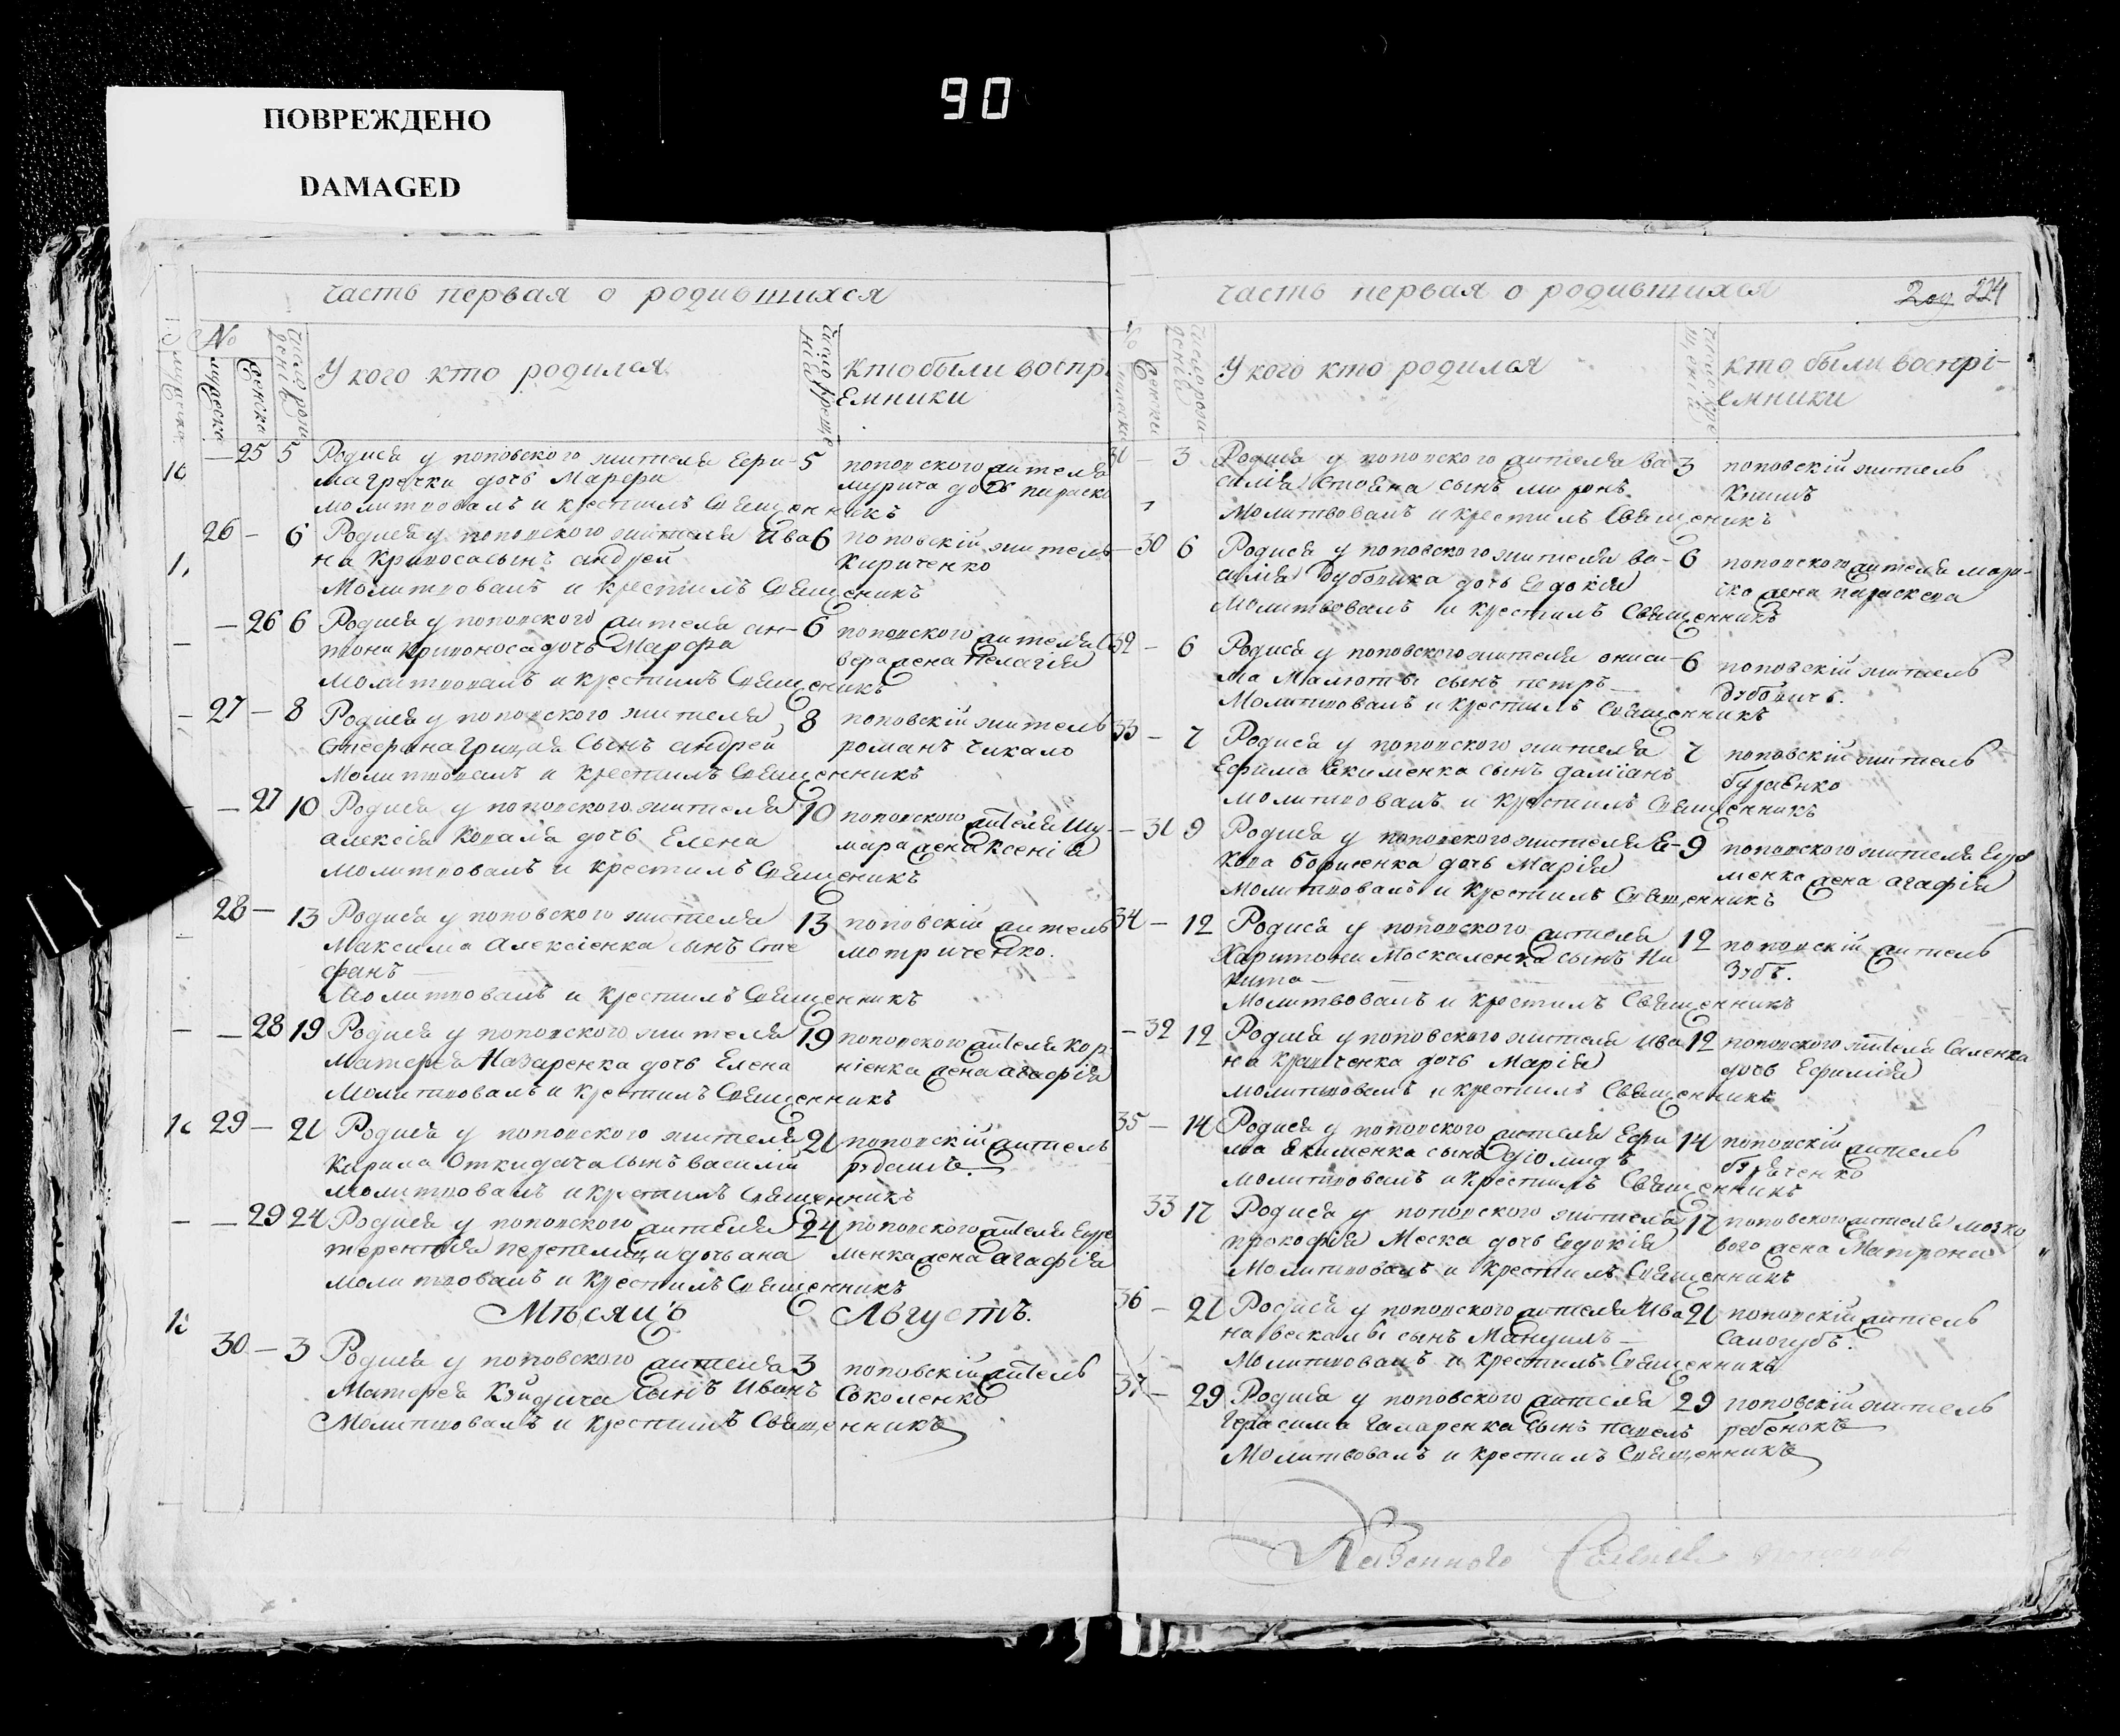 90
ПОВРЕЖДЕНО
DAMAGED
часть первая о родившихся
№
мужеска
женска
число рож
денїя
У кого кто родился
число креще
нїя
кто были воспрі
емники
25 5 Родися у поповского жителя Ефи- 5 поповского жителя
ма Гречки дочь Марфа
дочь параске
молитвовалъ и крестилъ Священникъ
26 - 6 Родися у поповского жителя Ива 6 поповскій житель
на Кривоноса сынъ андрей Кириченко
Молитвовалъ и крестилъ Священникъ
- 26 6 Родися у поповского жителя ан- 6 поповского жителя
тона Кривоноса дочь Марфа жена Пелагія
молитвовалъ и крестилъ Священникъ
27 - 8 Родися у поповского жителя 8 поповскій житель
Стефана Грицая сынъ андрей романъ Чикало
Молитвовалъ и крестилъ Священникъ
- 27 10 Родися у поповского жителя 10 поповского жителя Шу-
алексія Коваля дочь Елена мара жена Ксенія
молитвовалъ и крестилъ Священникъ
28 - 13 Родися у поповского жителя 13 поповскій житель
Максима Алексіенка сынъ Сте мотриченко.
фанъ
Молитвовалъ и крестилъ Священникъ
- 28 19 Родися у поповского жителя 19 поповского жителя кор
Матфея Назаренка дочь Елена нієнка жена агафія
Молитвовалъ и крестилъ Священникъ
29 - 21 Родися у поповского жителя 21 поповскій житель
Кирила Откидача сынъ василій
молитвовалъ и крестилъ Священникъ
- 29 24 Родися у поповского жителя 24 поповского жителя
терентія перепелици дочь ана менка жена агафія
молитвовалъ и крестилъ Священникъ
Мѣсяцъ Августъ.
30 - 3 Родися у поповского жителя 3 поповскій житель
Матфея сынъ Иванъ Соколенко
Молитвовалъ и крестилъ Священникъ
часть первая о родившихся
224
У кого кто родился
кто были воспрі-
емники
31 - 3 Родися у поповского жителя ва 3 поповскій житель
силія сынъ миронъ Книшъ
Молитвовалъ и крестилъ Священникъ
- 30 6 Родися у поповского жителя ва- 6 поповского жителя
силія Дубовика дочь Евдокія жена параскева
Молитвовалъ и крестилъ Священникъ
32 - 6 Родися у поповского жителя ониси- 6 поповскій житель
ма Малюты сынъ петръ Дубовичъ.
Молитвовалъ и крестилъ Священникъ
33 - 7 Родися у поповского жителя 7 поповскій житель
Ефима Екименка сынъ даміанъ
молитвовалъ и крестилъ Священникъ
- 31 9 Родися у поповского жителя Я- 9 поповского жителя
кова борисенка дочь Марія менка жена агафія
Молитвовалъ и крестилъ Священникъ
34 - 12 Родися у поповского жителя 12 поповскій житель
Харитона Москаленка сынъ Ни Зубъ.
кита
Молитвовалъ и крестилъ Священникъ
- 32 12 Родися у поповского жителя ива 12 поповского жителя Саленка
на дочь Марія дочь Ефимія
молитвовалъ и крестилъ Священникъ
35 - 14 Родися у поповского жителя Ефи 14 поповскій житель
ма Екименка сынъ діомидъ
молитвовалъ и крестилъ Священникъ
33 17 Родися у поповского жителя 17 поповского жителя мозко
прокофія Меска дочь Евдокія вого жена Матрона
Молитвовалъ и крестилъ Священникъ
36 - 21 Родися у поповского жителя Ива 21 поповскій житель
на сынъ Мануилъ Самогубъ.
Молитвовалъ и крестилъ Священникъ
37 - 29 Родися у поповского жителя 29 поповскій житель
Герасима Гамаренка сынъ павелъ ребенокъ
Молитвовалъ и крестилъ Священникъ